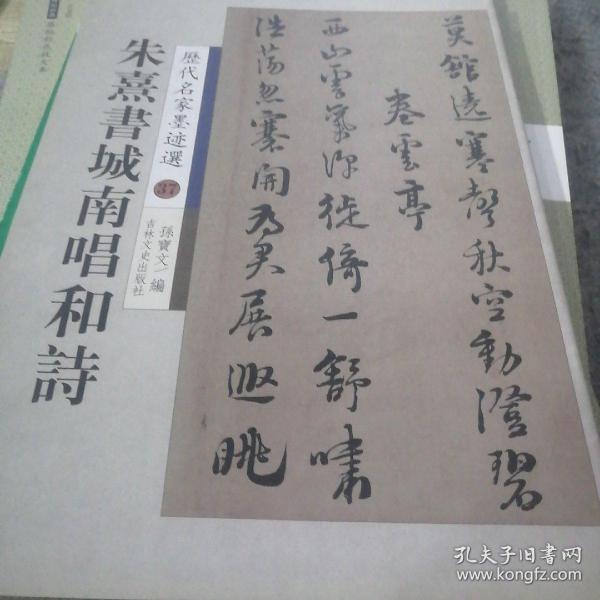 朱熹書城南唱和詩
歷代名家墨迹選
37
孫寶文 編
吉林文史出版社
英館遠寒聲秋空動澄碧
卷雲亭
西山雲氣深徙倚一舒嘯
浩蕩忽褰開為君展遐眺
孔夫子旧书网
www.kongfz.com